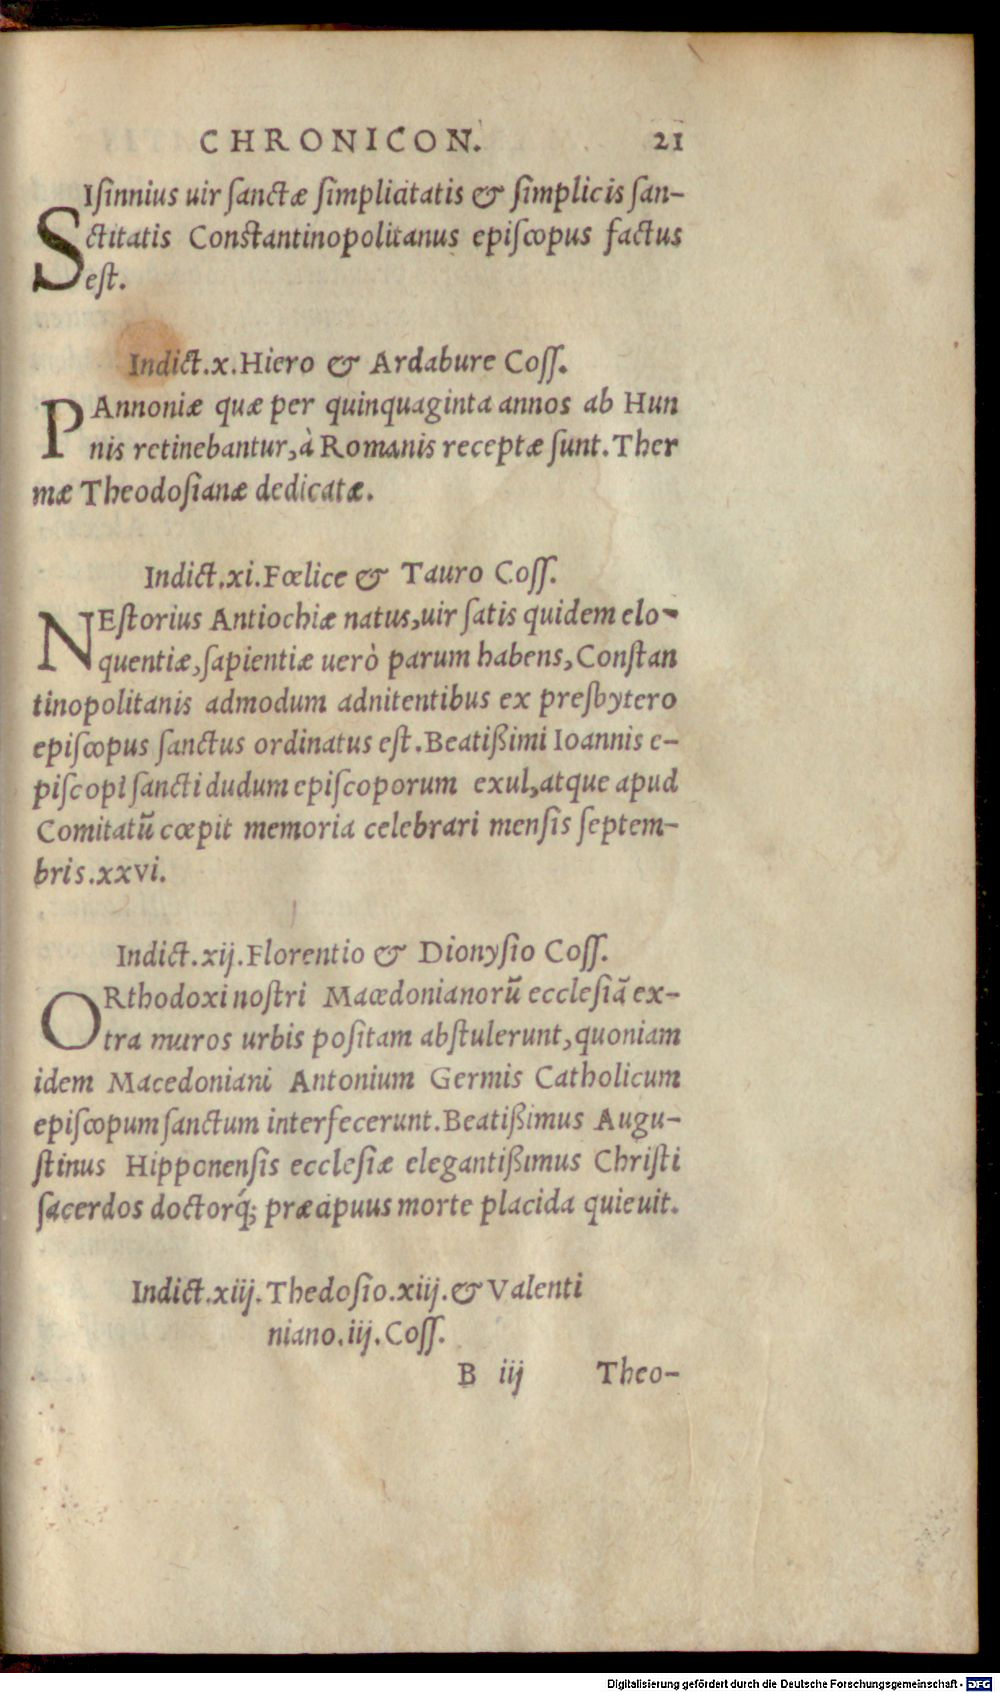 CHRONICON. 21
SIſinnius uir ſanctæ ſimplicitatis & ſimplicis ſan-
ctitatis Conſtantinopolitanus epiſcopus factus
eſt.
Indict.x.Hiero & Ardabure Coſſ.
PAnnoniæ quæ per quinquaginta annos ab Hun
nis retinebantur,à Romanis receptæ ſunt.Ther
mæ Theodoſianæ dedicatæ.
Indict.xi.Fœlice & Tauro Coſſ.
NEſtorius Antiochiæ natus,uir ſatis quidem elo-
quentiæ,ſapientiæ uerò parum habens,Conſtan
tinopolitanis admodum adnitentibus ex presbytero
epiſcopus ſanctus ordinatus eſt.Beatißimi Ioannis e-
piſcopi ſancti dudum epiſcoporum exul,atque apud
Comitatũ cœpit memoria celebrari menſis ſeptem-
bris.xxvi.
Indict.xij.Florentio & Dionyſio Coſſ.
ORthodoxi noſtri Macedonianorũ eccleſiã ex-
tra muros urbis poſitam abſtulerunt,quoniam
idem Macedoniani Antonium Germis Catholicum
epiſcopum ſanctum interfecerunt.Beatißimus Augu-
ſtinus Hipponenſis eccleſiæ elegantißimus Chriſti
ſacerdos doctorq́; præcipuus morte placida quieuit.
Indict.xiij.Thedoſio.xiij.& Valenti
niano.iij.Coſſ.
B iij Theo-
Digitalisierung gefördert durch die Deutsche Forschungsgemeinschaft - DFG